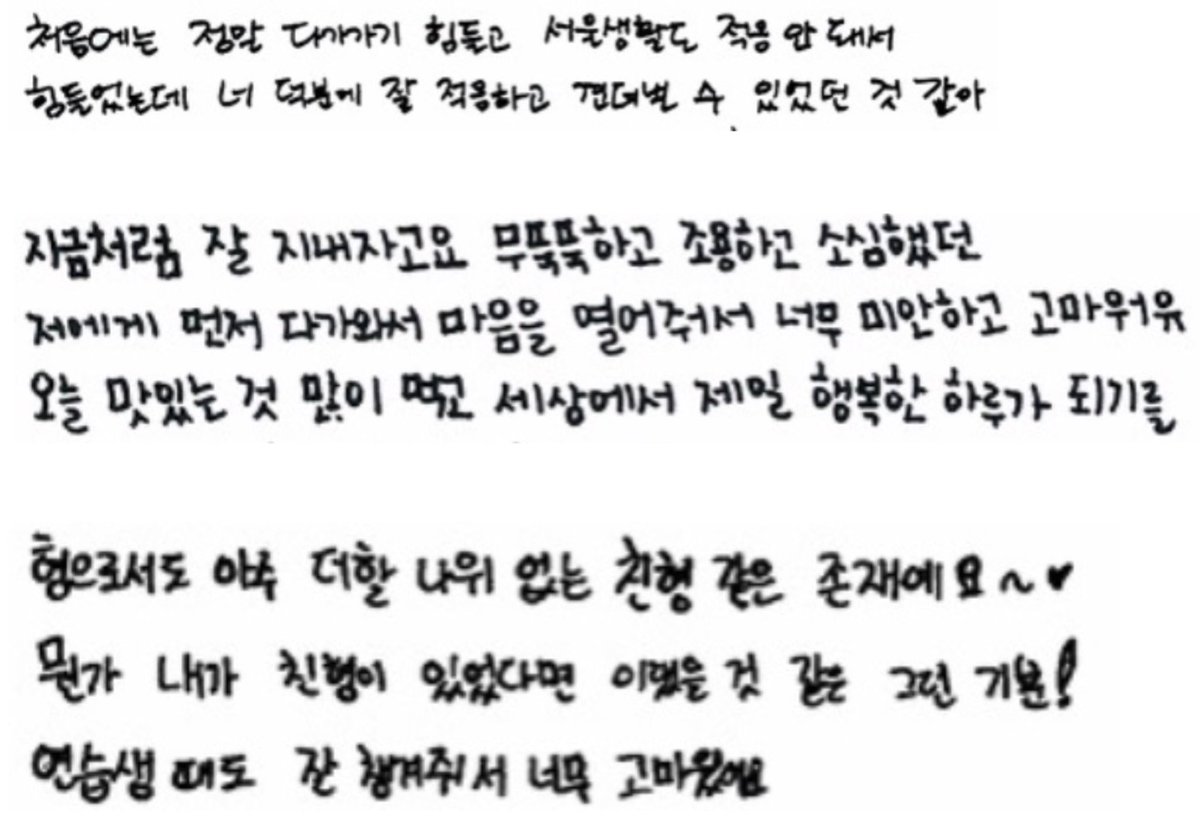 처음에는 정말 다가가기 힘들고 서울생활도 적응 안 돼서
힘들었는데 너 덕분에 잘 적응하고 견뎌낼 수 있었던 것 같아
지금처럼 잘 지내자고요 무뚝뚝하고 조용하고 소심했던
저에게 먼저 다가와서 마음을 열어줘서 너무 미안하고 고마워유
오늘 맛있는 것 많이 먹고 세상에서 제일 행복한 하루가 되기를
형으로서도 아주 더할 나위 없는 친형 같은 존재예요~♥
뭔가 내가 친형이 있었다면 이랬을 것 같은 그런 기분!
연습생 때도 잘 챙겨줘서 너무 고마웠어요